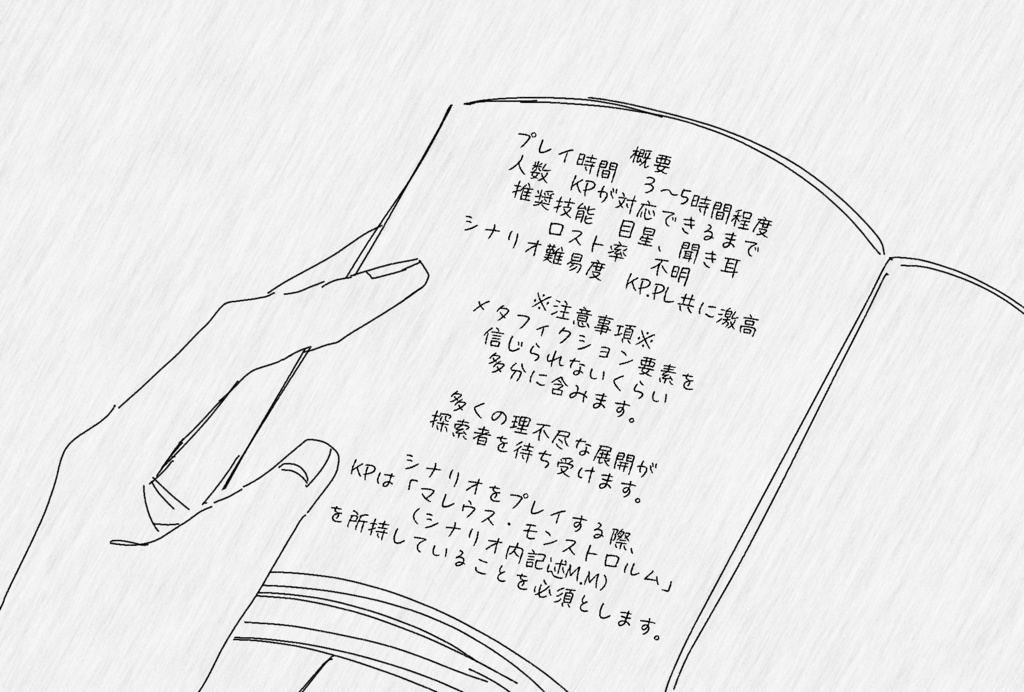 概要
プレイ時間　3～5時間程度
人数　KPが対応できるまで
推奨技能　目星、聞き耳
ロスト率　不明
シナリオ難易度　KP.PL共に激高
※注意事項※
メタフィクション要素を
信じられないくらい
多分に含みます。
多くの理不尽な展開が
探索者を待ち受けます。
シナリオをプレイする際、
KPは「マレウス・モンストロルム」
(シナリオ内記述M.M)
を所持していることを必須とします。